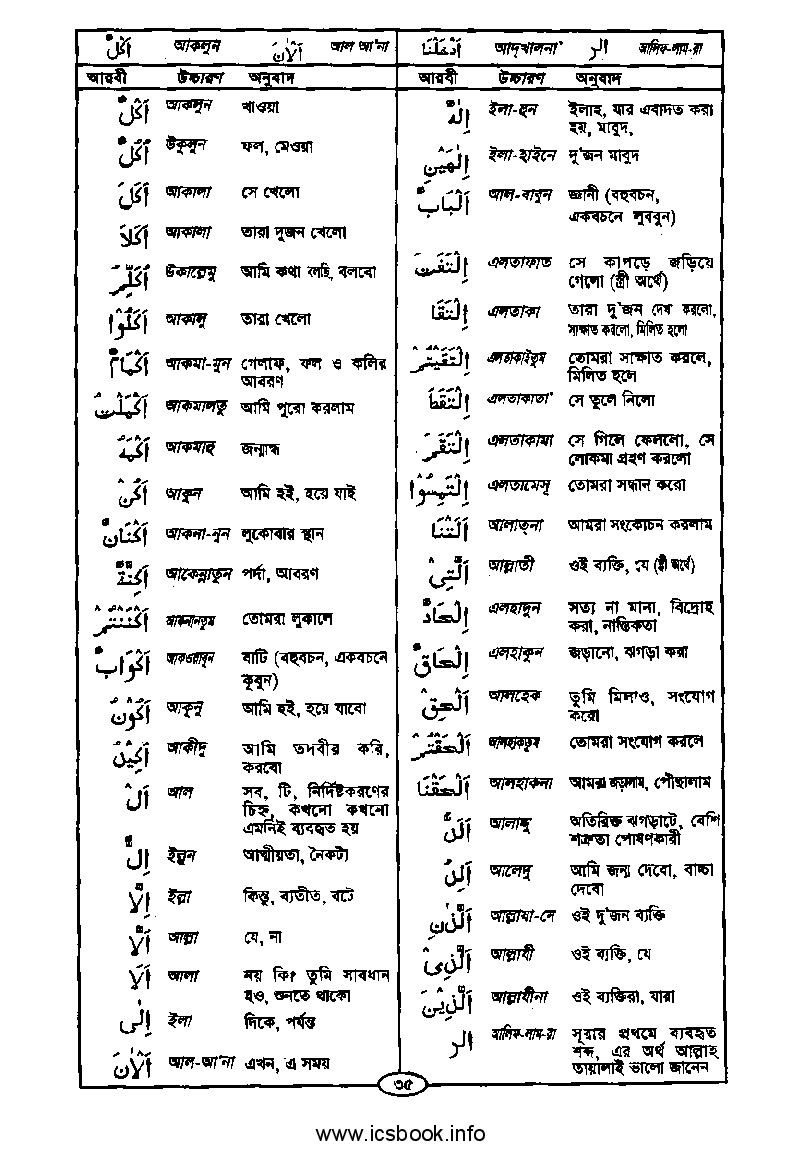 اَكْلٌ আকলুন اَلْاٰنَ আল আ'না
আরবী উচ্চারণ অনুবাদ
اَكْلٌ আকলুন খাওয়া
اُكُلٌ উকুলুন ফল, মেওয়া
اَكَلَ আকালা সে খেলো
اَكَلَا আকালা তারা দুজন খেলো
اُكَلِّمُ উকাল্লেমু আমি কথা বলছি, বলবো
اَكَلُوْا আকালু তারা খেলো
اَكْمَامٌ আকমা-মুন গেলাফ, ফল ও কলির
আবরণ
اَكْمَلْتُ আকমালতু আমি পুরো করলাম
اَكْمَهَ আকমাহু জন্মান্ধ
اَكُنْ আকুন আমি হই, হয়ে যাই
اَكْنَانٌ আকনা-নুন লুকোবার স্থান
اَكِنَّةٌ আকেন্নাতুন পর্দা, আবরণ
اَكْنَنْتُمْ আকনানতুম তোমরা লুকালে
اَكْوَابٌ আকওয়াবুন বাটি (বহুবচন, একবচনে
কূবুন)
اَكُوْنُ আকূনু আমি হই, হয়ে যাবো
اَكِيْدُ আকীদু আমি তদবীর করি,
করবো
اَلْ আল সব, টি, নির্দিষ্টকরণের
চিহ্ন, কখনো কখনো
এমনিই ব্যবহৃত হয়
اِلٌّ ইল্লুন আত্মীয়তা, নৈকট্য
اِلَّا ইল্লা কিন্তু, ব্যতীত, বটে
اَلَّا আল্লা যে, না
اَلَا আলা নয় কি? তুমি সাবধান
হও, শুনতে থাকো
اِلٰى ইলা দিকে, পর্যন্ত
اَلْاٰنَ আল-আ'না এখন, এ সময়
اَدْخَلْنَا আদ্খালনা' الر আলিফ-লাম-রা
আরবী উচ্চারণ অনুবাদ
اِلٰهٌ ইলা-হুন ইলাহ, যার এবাদত করা
হয়, মাবুদ,
اِلٰهَيْنِ ইলা-হাইনে দু'জন মাবুদ
اَلْبَابٌ আল-বাবুন জ্ঞানী (বহুবচন,
একবচনে লুববুন)
اِلْتَفَّتْ এলতাফাত সে কাপড়ে জড়িয়ে
গেলো (স্ত্রী অর্থে)
اِلْتَقَا এলতাকা তারা দু'জন দেখা করলো,
সাক্ষাত করলো, মিলিত হলো
اِلْتَقَيْتُمْ এলতাকাইতুম তোমরা সাক্ষাত করলে,
মিলিত হলে
اِلْتَقَطَ এলতাকাতা' সে তুলে নিলো
اِلْتَقَمَ এলতাকামা সে গিলে ফেললো, সে
লোকমা গ্রহণ করলো
اِلْتَمِسُوْا এলতামেসূ তোমরা সন্ধান করো
اَلَتْنَا আলাত্না আমরা সংকোচন করলাম
اَلَّتِىْ আল্লাতী ওই ব্যক্তি, যে (স্ত্রী অর্থে)
اِلْحَادٌ এলহাদুন সত্য না মানা, বিদ্রোহ
করা, নাস্তিকতা
اِلْحَاقٌ এলহাকুন জড়ানো, ঝগড়া করা
اَلْحِقْ আলহেক তুমি মিলাও, সংযোগ
করো
اَلْحَقْتُمْ আলহাকতুম তোমরা সংযোগ করলে
اَلْحَقْنَا আলহাকনা আমরা জড়ালাম, পৌঁছালাম
اَلَدُّ আলাদ্দু অতিরিক্ত ঝগড়াটে, বেশি
শত্রুতা পোষণকারী
اَلِدُ আলেদু আমি জন্ম দেবো, বাচ্চা
দেবো
اَلَّذٰنِ আল্লাযা-নে ওই দু'জন ব্যক্তি
اَلَّذِىْ আল্লাযী ওই ব্যক্তি, যে
اَلَّذِيْنَ আল্লাযীনা ওই ব্যক্তিরা, যারা
الر আলিফ-লাম-রা সূরার প্রথমে ব্যবহৃত
শব্দ, এর অর্থ আল্লাহ
তায়ালাই ভালো জানেন
৩৫
www.icsbook.info